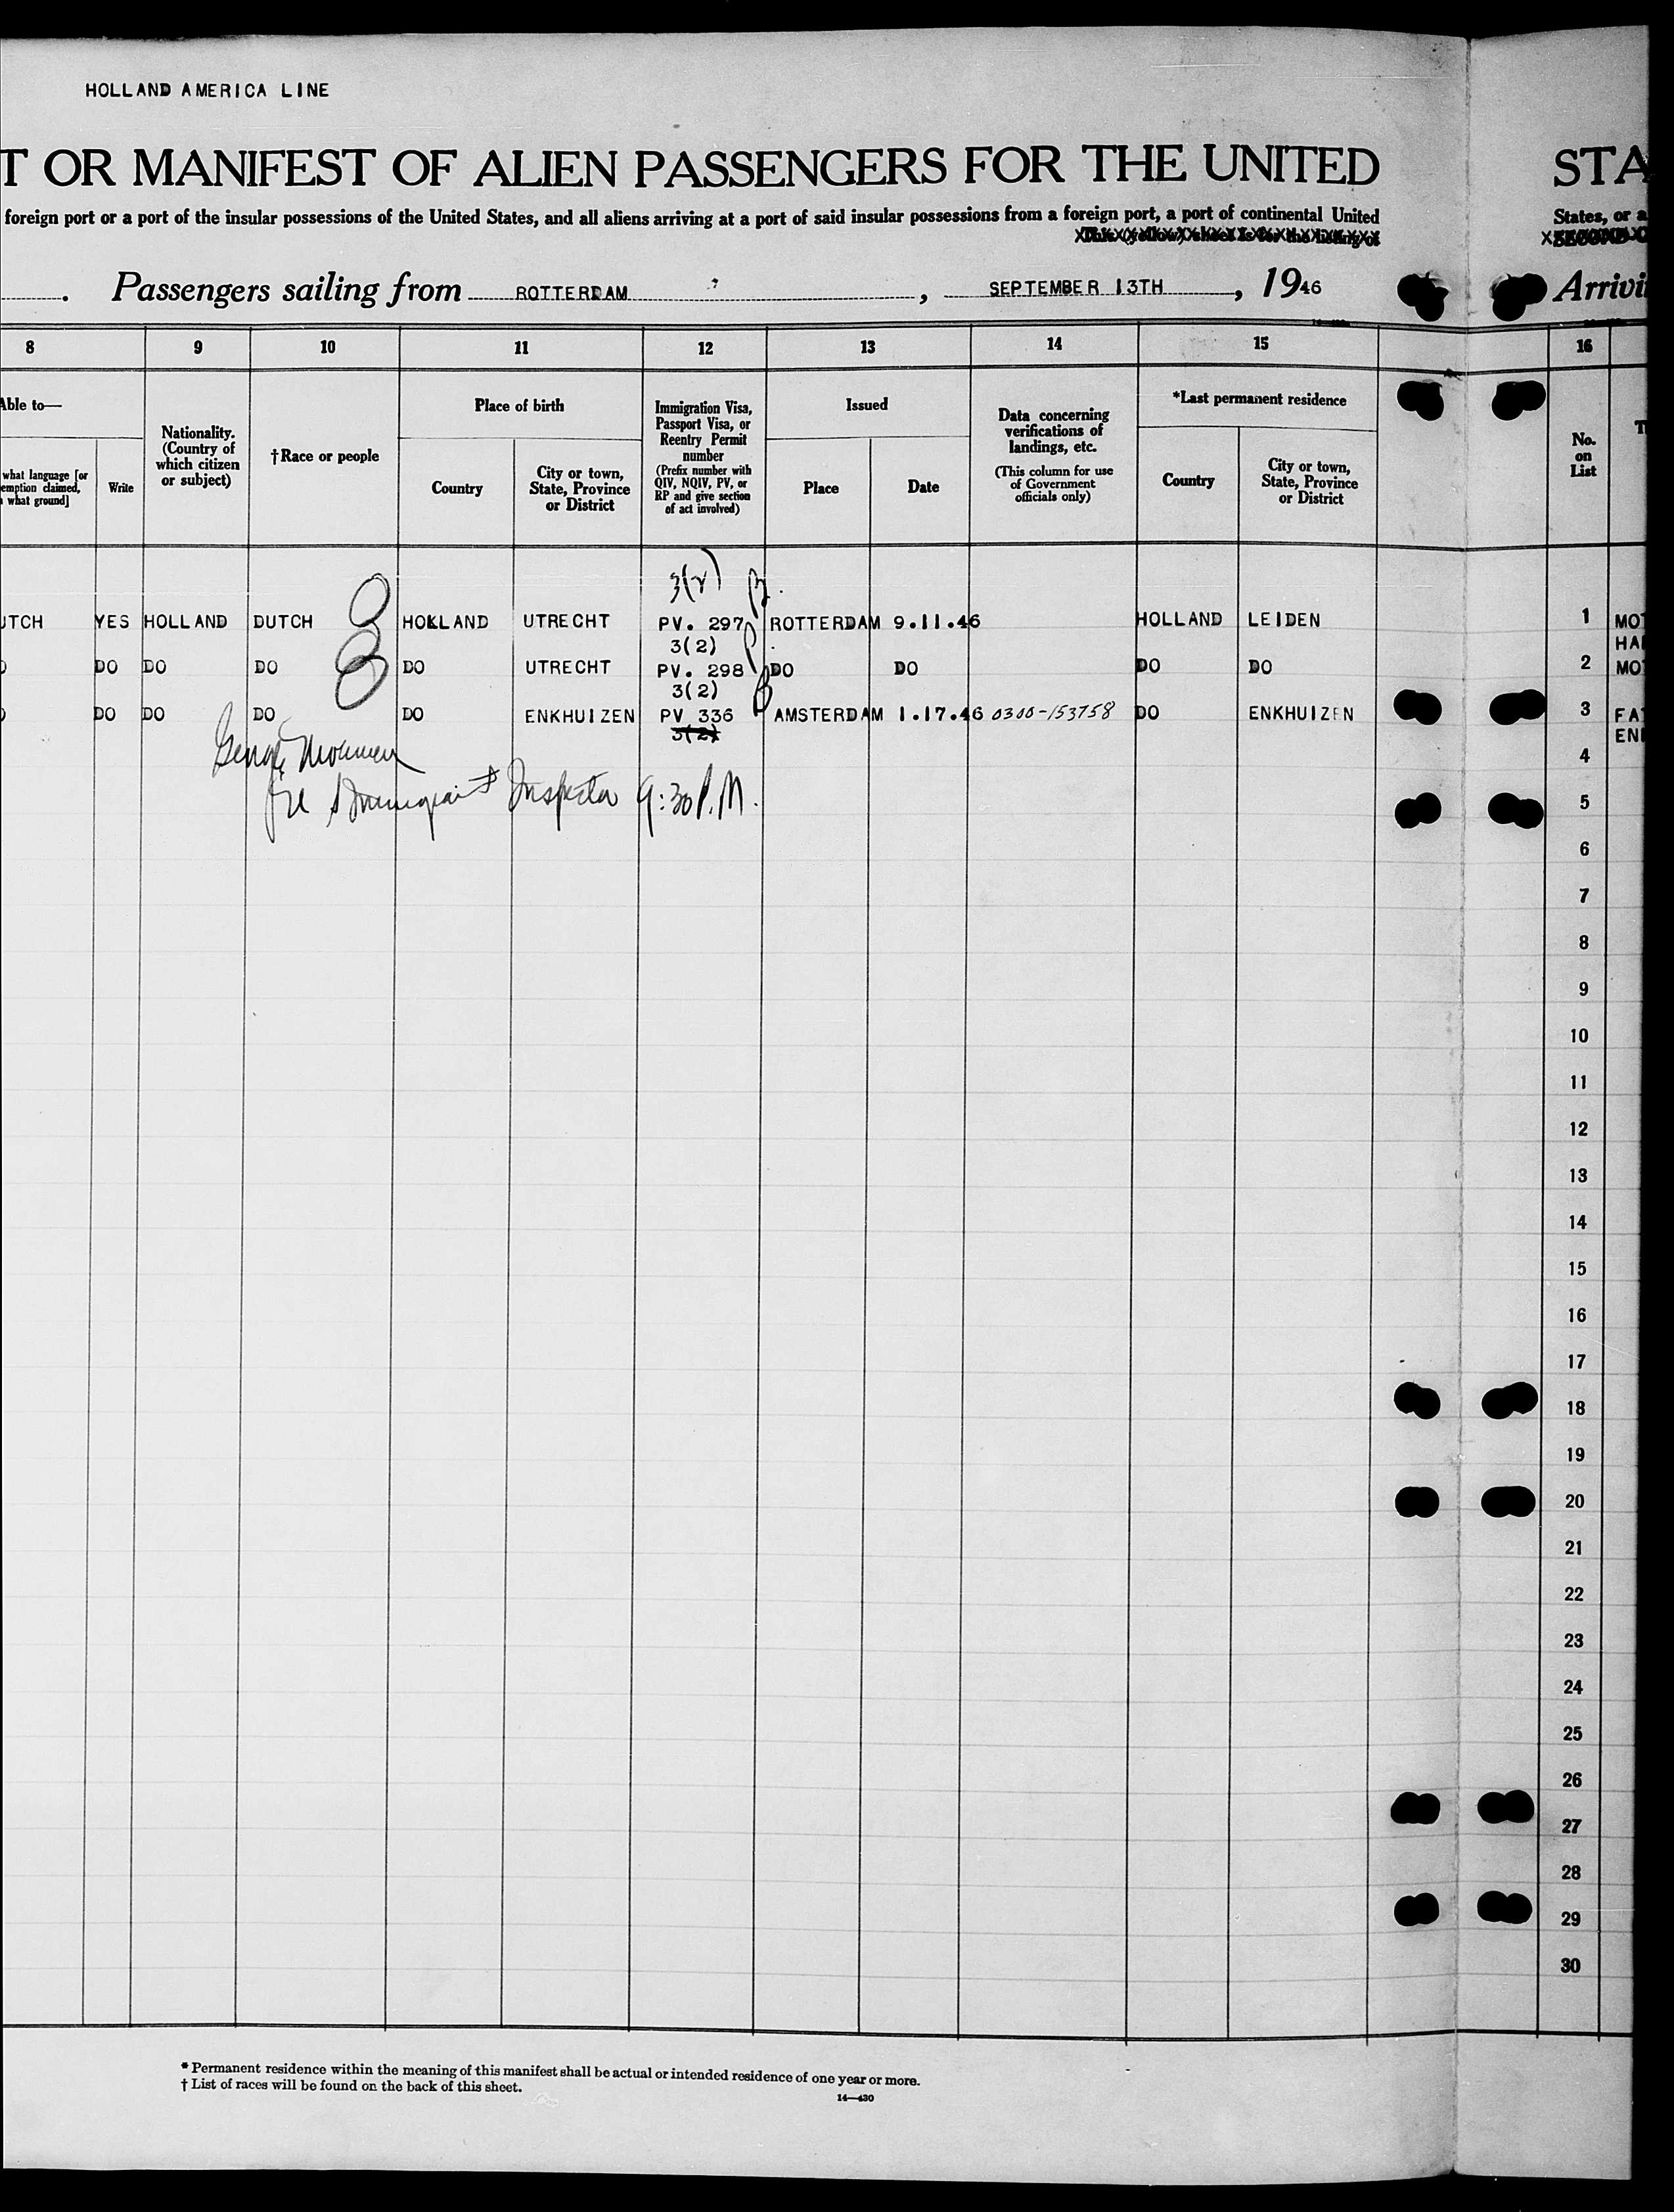 HOLLAND AMERICA LINE
T OR MANIFEST OF ALIEN PASSENGERS FOR THE UNITED STA
foreign port or a port of the insular possessions of the United States, and all aliens arriving at a port of said insular possessions from a foreign port, a port of continental United States, or a
This (yellow) sheet is for the listing of
SECOND-C
. Passengers sailing from ROTTERDAM , SEPTEMBER 13TH , 1946 Arrivi
8 9 10 11 12 13 14 15 16
Able to—
what language [or
emption claimed,
what ground]
Write
Nationality.
(Country of
which citizen
or subject)
†Race or people
Place of birth
Country
City or town,
State, Province
or District
Immigration Visa,
Passport Visa, or
Reentry Permit
number
(Prefix number with
QIV, NQIV, PV, or
RP and give section
of act involved)
Issued
Place
Date
Data concerning
verifications of
landings, etc.
(This column for use
of Government
officials only)
*Last permanent residence
Country
City or town,
State, Province
or District
No.
on
List
T
3(2)
UTCH YES HOLLAND DUTCH HOLLAND UTRECHT PV. 297 ROTTERDAM 9.11.46 HOLLAND LEIDEN 1 MO
3(2) HA
DO DO DO DO UTRECHT PV. 298 DO DO DO DO 2 MO
3(2)
DO DO DO DO ENKHUIZEN PV 336 AMSTERDAM 1.17.46 0300-153758 DO ENKHUIZEN 3 FA
3(2) EN
George
Immigrant Inspector 9:30 P.M.
4
5
6
7
8
9
10
11
12
13
14
15
16
17
18
19
20
21
22
23
24
25
26
27
28
29
30
* Permanent residence within the meaning of this manifest shall be actual or intended residence of one year or more.
† List of races will be found on the back of this sheet.
14—430